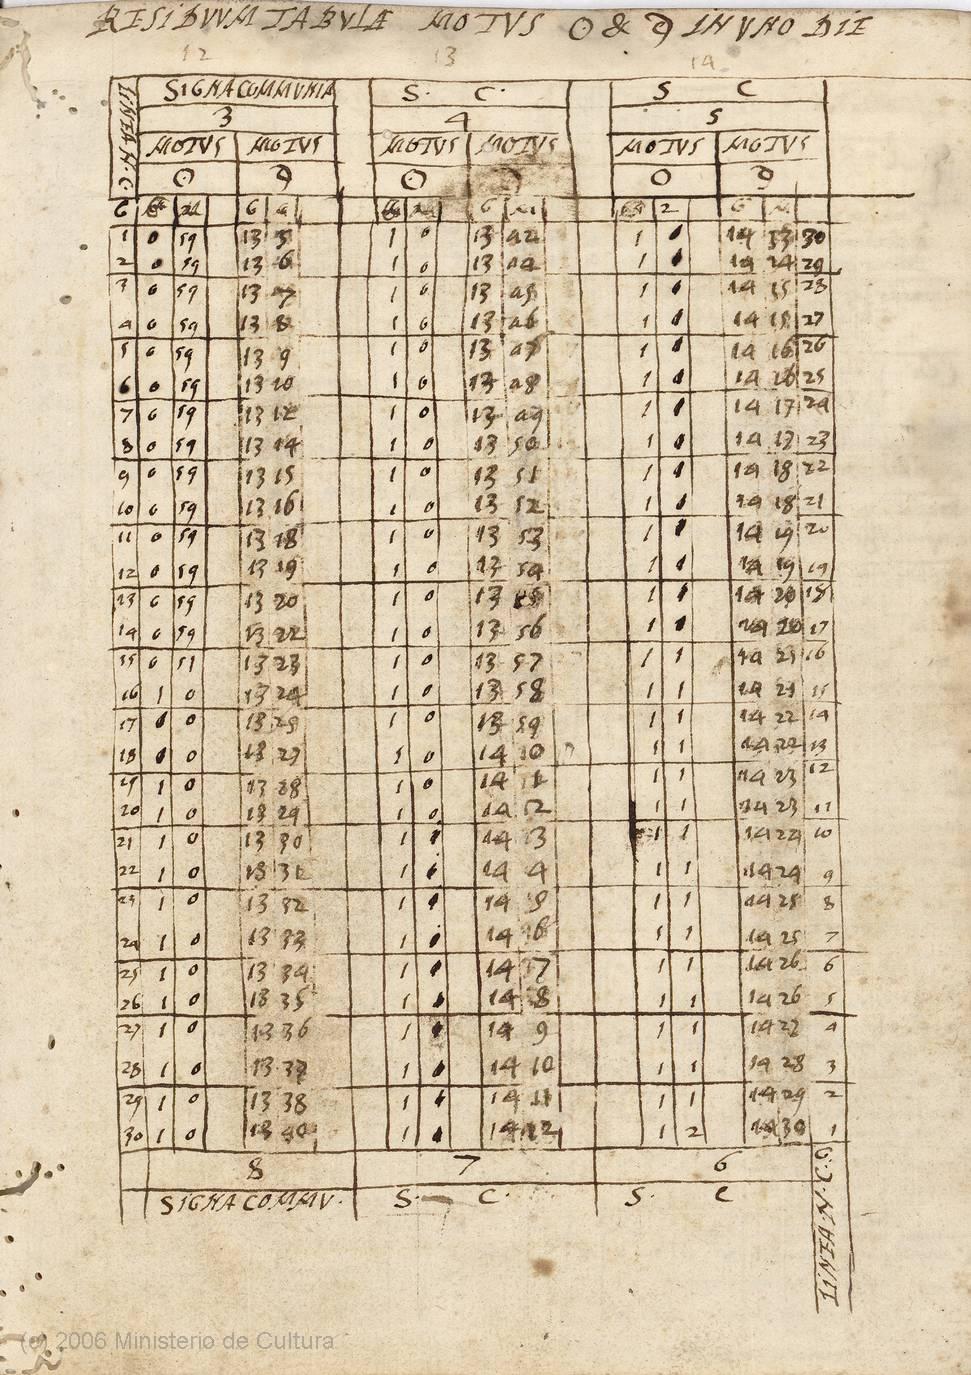 RESIDVVM TABVLÆ MOTVS ☉ & ☽ IN VNO DIE
12 13 14
SIGNA COMMVNIA S. C. S C
3 4 5
MOTVS MOTVS MOTVS MOTVS MOTVS MOTVS
☉ ☽ ☉ ☉ ☽
G G G 2 G
1 0 59 13 5 1 0 13 42 1 0 14 13 30
2 0 59 13 6 1 0 13 44 1 0 14 14 29
3 0 59 13 7 1 0 13 45 1 0 14 15 28
4 0 59 13 8 1 0 13 46 1 0 14 15 27
5 0 59 13 9 1 0 13 47 1 0 14 16 26
6 0 59 13 10 1 0 13 48 1 0 14 16 25
7 0 59 13 12 1 0 13 49 1 0 14 17 24
8 0 59 13 14 1 0 13 50 1 0 14 17 23
9 0 59 13 15 1 0 13 51 1 0 14 18 22
10 0 59 13 16 1 0 13 52 1 0 14 18 21
11 0 59 13 18 1 0 13 53 1 0 14 19 20
12 0 59 13 19 1 0 13 54 1 0 14 19 19
13 0 59 13 20 1 0 13 55 1 1 14 20 18
14 0 59 13 22 1 0 13 56 1 1 14 20 17
15 0 51 13 23 1 0 13 57 1 1 14 21 16
16 1 0 13 24 1 0 13 58 1 1 14 21 15
17 0 0 13 25 1 0 13 59 1 1 14 22 14
18 0 0 13 27 1 0 14 0 1 1 14 22 13
1 0 13 28 1 0 14 1 1 1 14 23 12
20 1 0 13 29 1 0 14 2 1 1 14 23 11
21 1 0 13 30 1 1 14 3 1 1 14 24 10
22 1 0 13 31 1 1 14 4 1 1 14 24 9
23 1 0 13 32 1 1 14 5 1 1 14 25 8
24 1 0 13 33 1 1 14 6 1 1 14 25 7
25 1 0 13 34 1 1 14 7 1 1 14 26 6
26 1 0 13 35 1 1 14 8 1 1 14 26 5
27 1 0 13 36 1 1 14 9 1 1 14 27 4
28 1 0 13 37 1 1 14 10 1 1 14 28 3
29 1 0 13 38 1 1 14 11 1 1 14 29 2
30 1 0 13 40 1 1 14 12 1 2 14 30 1
8 7 6
SIGNA COMMV. S. C. S. C
(c) 2006 Ministerio de Cultura